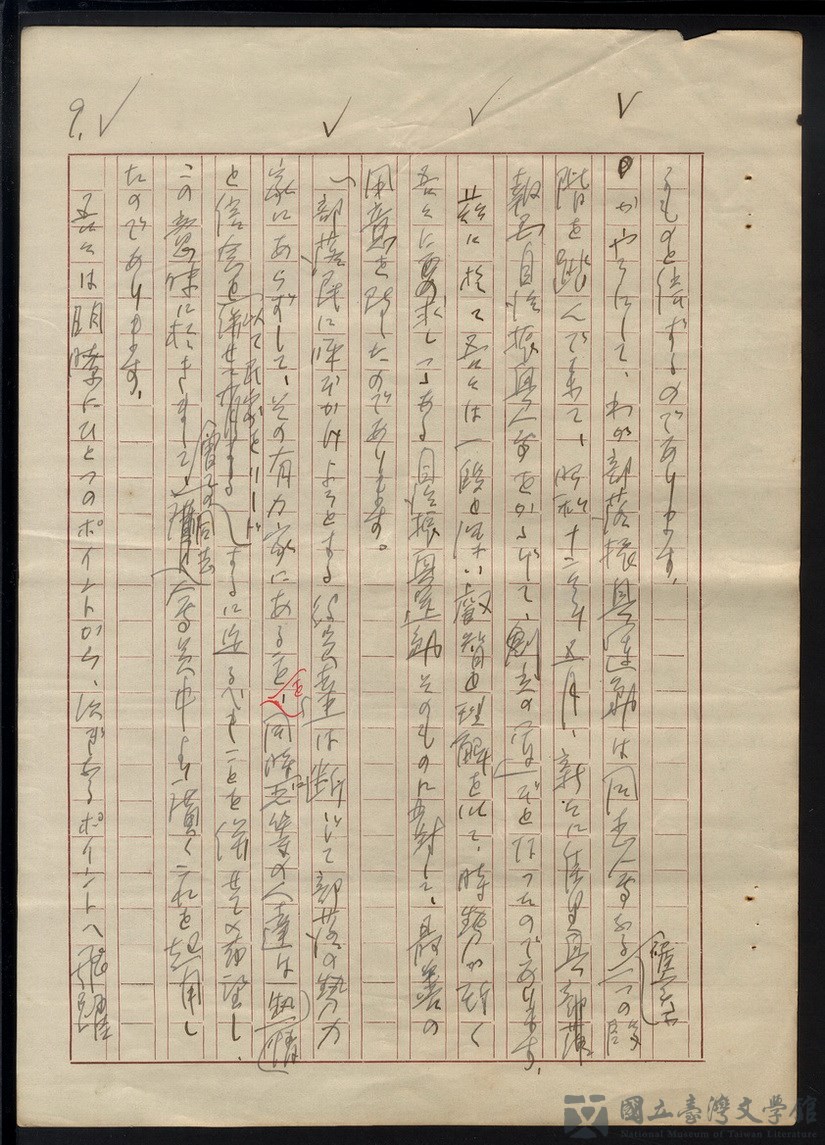 るものと信ずるのであります。
かやうにして、わが部落振興運動は同志人会なる一つの段
階を踏んで来て、昭和十二年五月、新らに佳里興部落
報国自治振興会をかゝげて、創立の運びとなつたのであります。
茲に於て吾々は一段と深い叡智と理解を以て、時勢が正しく
吾々に要求しつゝある自治振興運動そのものに対して、最善の
用意を時したのであります。
部落民に呼びかけようとする役員達は断じて部落の勢力
家にあらずして、その有力家にある。を、同時に吾等の人達は熱情
と信念を併せ有する
以て民衆をリード
するに足るべきことを併せて希望し、
この意味に於きまして、
会員中より広くこれを起用し
たのであります。
吾々は明瞭にひとつのポイントから、次なるポイントへ飛躍
9.
國立臺灣文學館
National Museum of Taiwan Literature